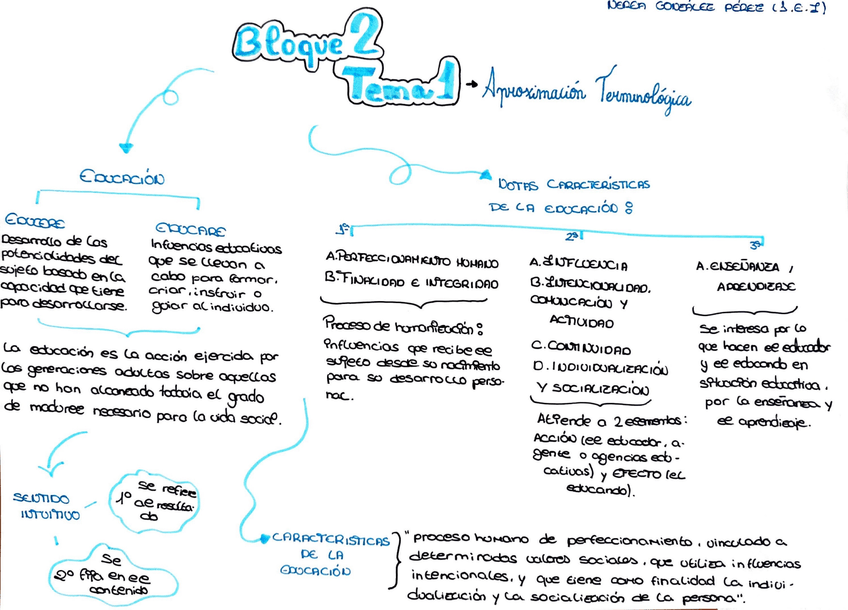 NEREA GONZÁLEZ PÉREZ (J.E.I)
Bloque 2
Tema 1
Aproximación Terminológica
EDUCACIÓN
EDUCERE
Desarrollo de las
potencialidades del
sujeto basado en la
capacidad que tiene
para desarrollarse.
EDUCARE
Influencias educativas
que se llevan a
cabo para formar,
criar, instruir o
guiar al individuo.
La educación es la acción ejercida por
las generaciones adultas sobre aquellas
que no han alcanzado todavía el grado
de madurez necesario para la vida social.
SENTIDO
INTUITIVO
Se refiere
1º al resulta-
do
Se
2º fija en el
contenido
NOTAS CARACTERÍSTICAS
DE LA EDUCACIÓN:
1º
A. PERFECCIONAMIENTO HUMANO
B. FINALIDAD E INTEGRIDAD
Proceso de humanización:
influencias que recibe el
sujeto desde su nacimiento
para su desarrollo perso-
nal.
2º
A. INFLUENCIA
B. INTENCIONALIDAD,
COMUNICACIÓN Y
ACTIVIDAD
C. CONTINUIDAD
D. INDIVIDUALIZACIÓN
Y SOCIALIZACIÓN
Atiende a 2 elementos:
ACCIÓN (el educador, a-
gente o agencias edu-
cativas) y EFECTO (el
educando).
3º
A. ENSEÑANZA /
APRENDIZAJE
Se interesa por lo
que hacen el educador
y el educando en
situación educativa,
por la enseñanza y
el aprendizaje.
CARACTERISTICAS
DE LA
EDUCACIÓN
"proceso humano de perfeccionamiento, vinculado a
determinados valores sociales, que utiliza influencias
intencionales, y que tiene como finalidad la indivi-
dualización y la socialización de la persona".